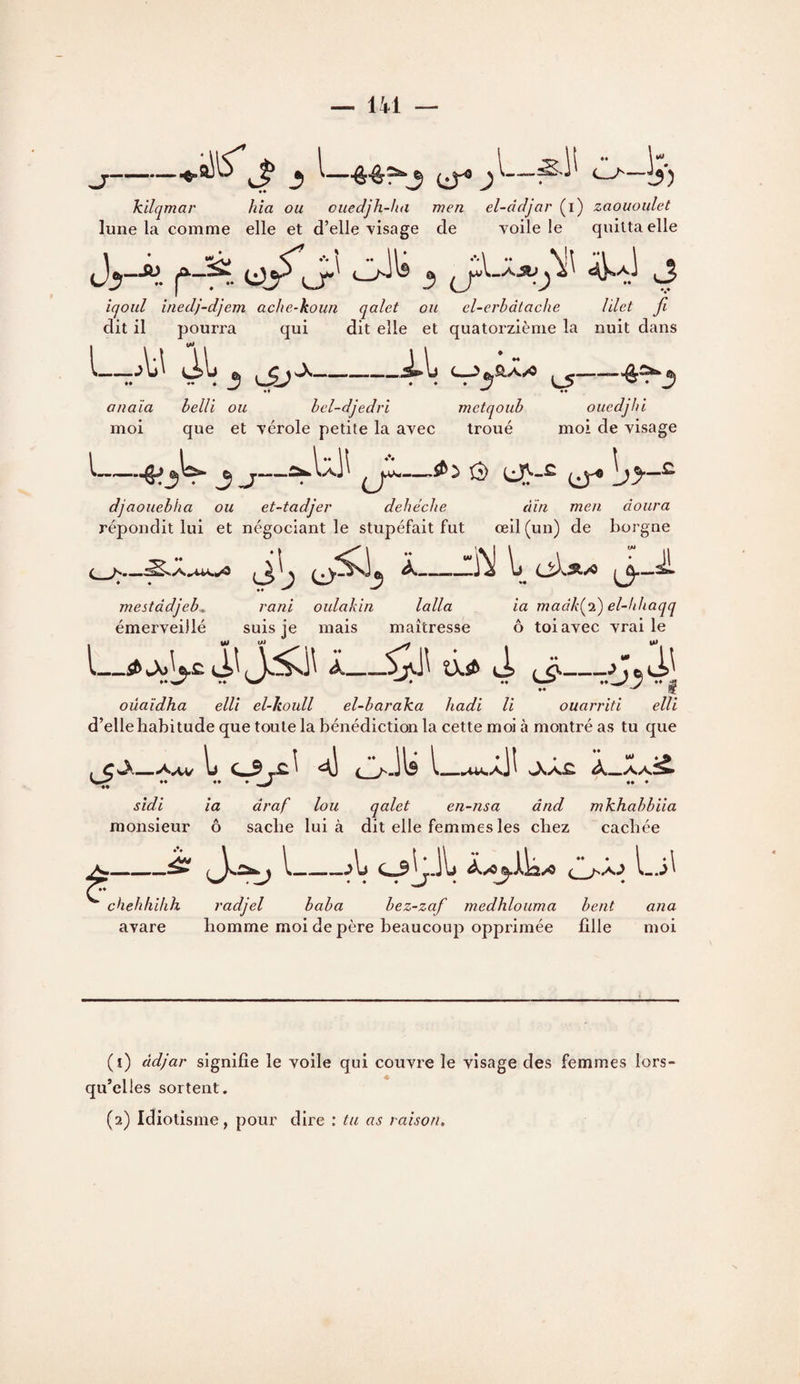 — 141 —
زولت العجار من وجهها و هي كالقمر
kilqmar hia ou ouedjh-ha men el-ádjar (1) zaououlet
lune la comme elle et d'elle visage de voile le quitta elle
في ليلة الاربعتاش و قالت اش كون ينجم يقول
iqoul inedj-djem ache-koun qalet ou el-erbátache lilet fi
dit il pourra qui dit elle et quatorzième la nuit dans
وجهي متقوب بالجدري و بللي انايا
anaïa belli ou bel-djedri metqoub ouedjhi
moi que et vérole petite la avec troué moi de visage
عورا من عين دهش التاجر و جاوبها
djaouebha ou et-tadjer dehéche áïn men áoura
répondit lui et négociant le stupéfait fut œil (un) de borgne
الحق معاك يا لالة ولكن راني مستعجب
mestádjeb rani oulakin lalla ia maák(2) el-hhaqq
émerveillé suis je mais maîtresse ô toi avec vrai le
اللي وريتي لي هذ البركة الكل اللي عوايدها
oúaïdha elli el-koull el-baraka hadi li ouarriti elli
d'elle habitude que toute la bénédiction la cette moi à montré as tu que
مخبية عند النسا قالت له اعرف يا سيدي
sidi ia áraf lou qalet en-nsa ánd mkhabbiia
monsieur ô sache lui à dit elle femmes les chez cachée
انا بنت مظلومة بالزاف بابا رجل شحيح
chehhihh radjel baba bez-zaf medhlouma bent ana
avare homme moi de père beaucoup opprimée fille moi
(1) ádjar signifie le voile qui couvre le visage des femmes lors-
qu'elles sortent.
(2) Idiotisme, pour dire : tu as raison.